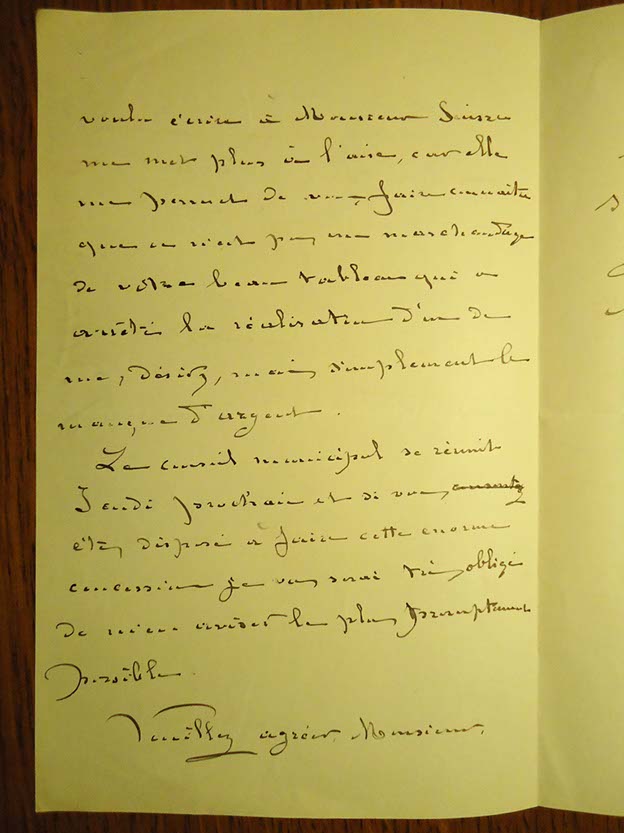 voulu écrire à Monsieur
me met plus à l'aise, car elle
me permet de vous faire connaitre
que ce n'est pas un marchandage
de votre beau tableau qui a
arrêté la réalisation d'un de
mes désirs, mais simplement le
manque d'argent.
Le conseil municipal se réunit
Jeudi prochain et si vous
êtes disposé à faire cette enorme
concession je vous serai très obligé
de m'en aviser le plus promptement
possible
Veuillez agréer, Monsieur,